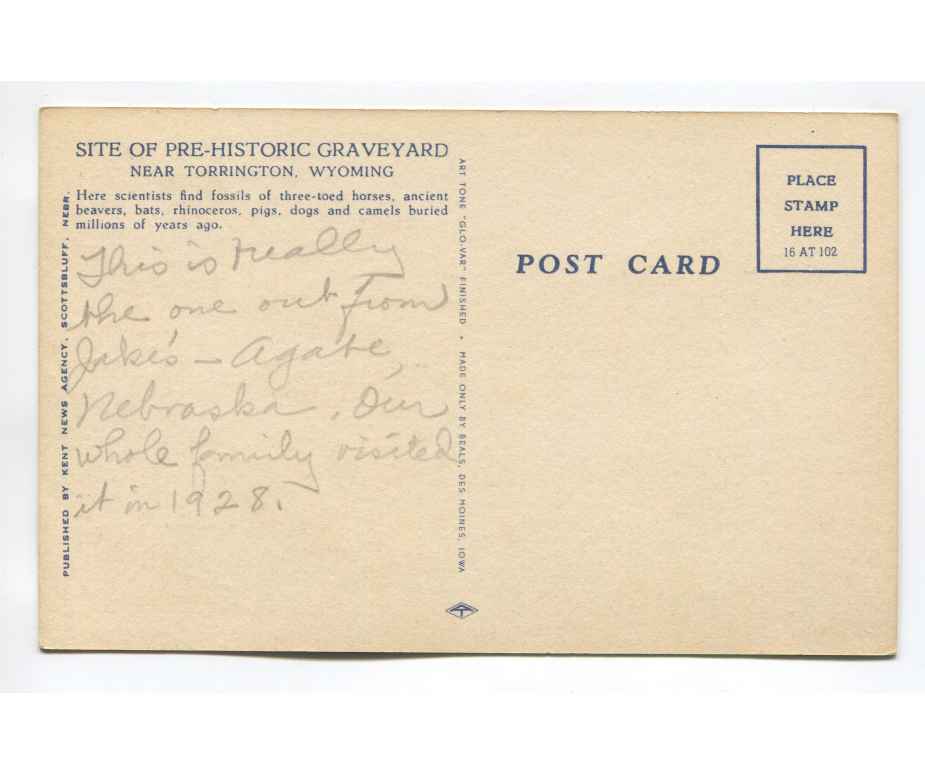 SITE OF PRE-HISTORIC GRAVEYARD
NEAR TORRINGTON, WYOMING
Here scientists find fossils of three-toed horses, ancient
beavers, bats, rhinoceros, pigs, dogs and camels buried
millions of years ago.
This is really
the one out from
Jake's – Agate,
Nebraska. Our
whole family visited
it in 1928.
PUBLISHED BY KENT NEWS AGENCY, SCOTTSBLUFF, NEBR.
ART TONE "GLO-VAR" FINISHED • MADE ONLY BY BEALS, DES MOINES, IOWA
POST CARD
PLACE
STAMP
HERE
16 AT 102